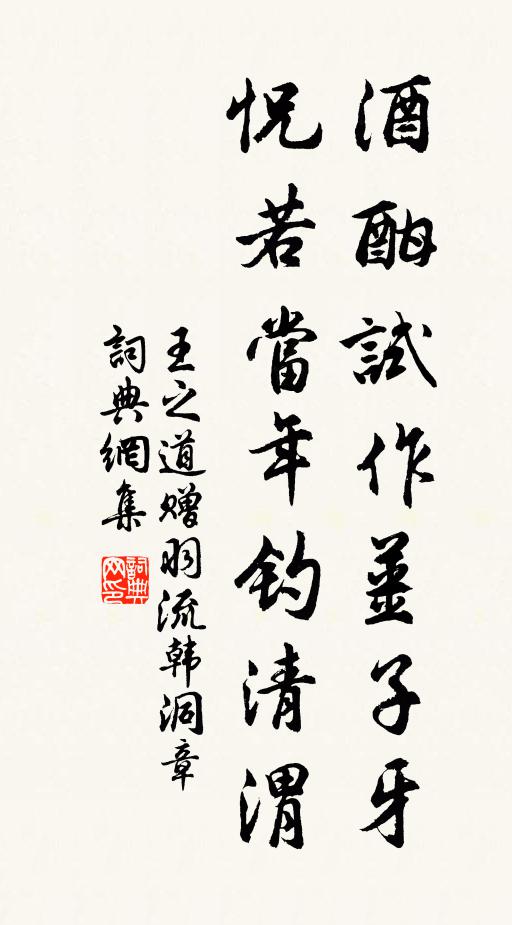 酒酣試作薑子牙
怳若當年釣清渭
王之道赠羽流韩洞章
詞典網集
詞典网印